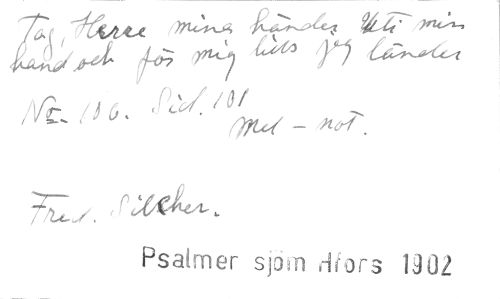 Tag, Herre mina händer Uti min
hand och för mig tills jag länder
No. 106. Sid. 101
Mel - not.
Fred. Silcher.
Psalmer sjöm Hfors 1902